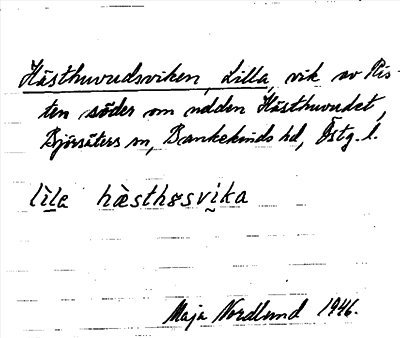 Hästhuvudsviken, Lilla, vik av Ris-
ten söder om udden Hästhuvudet,
Björsäters sn, Bankekinds hd, Östg. l.
lìla hæ̀sthɵsvika
Maja Nordlund 1946.